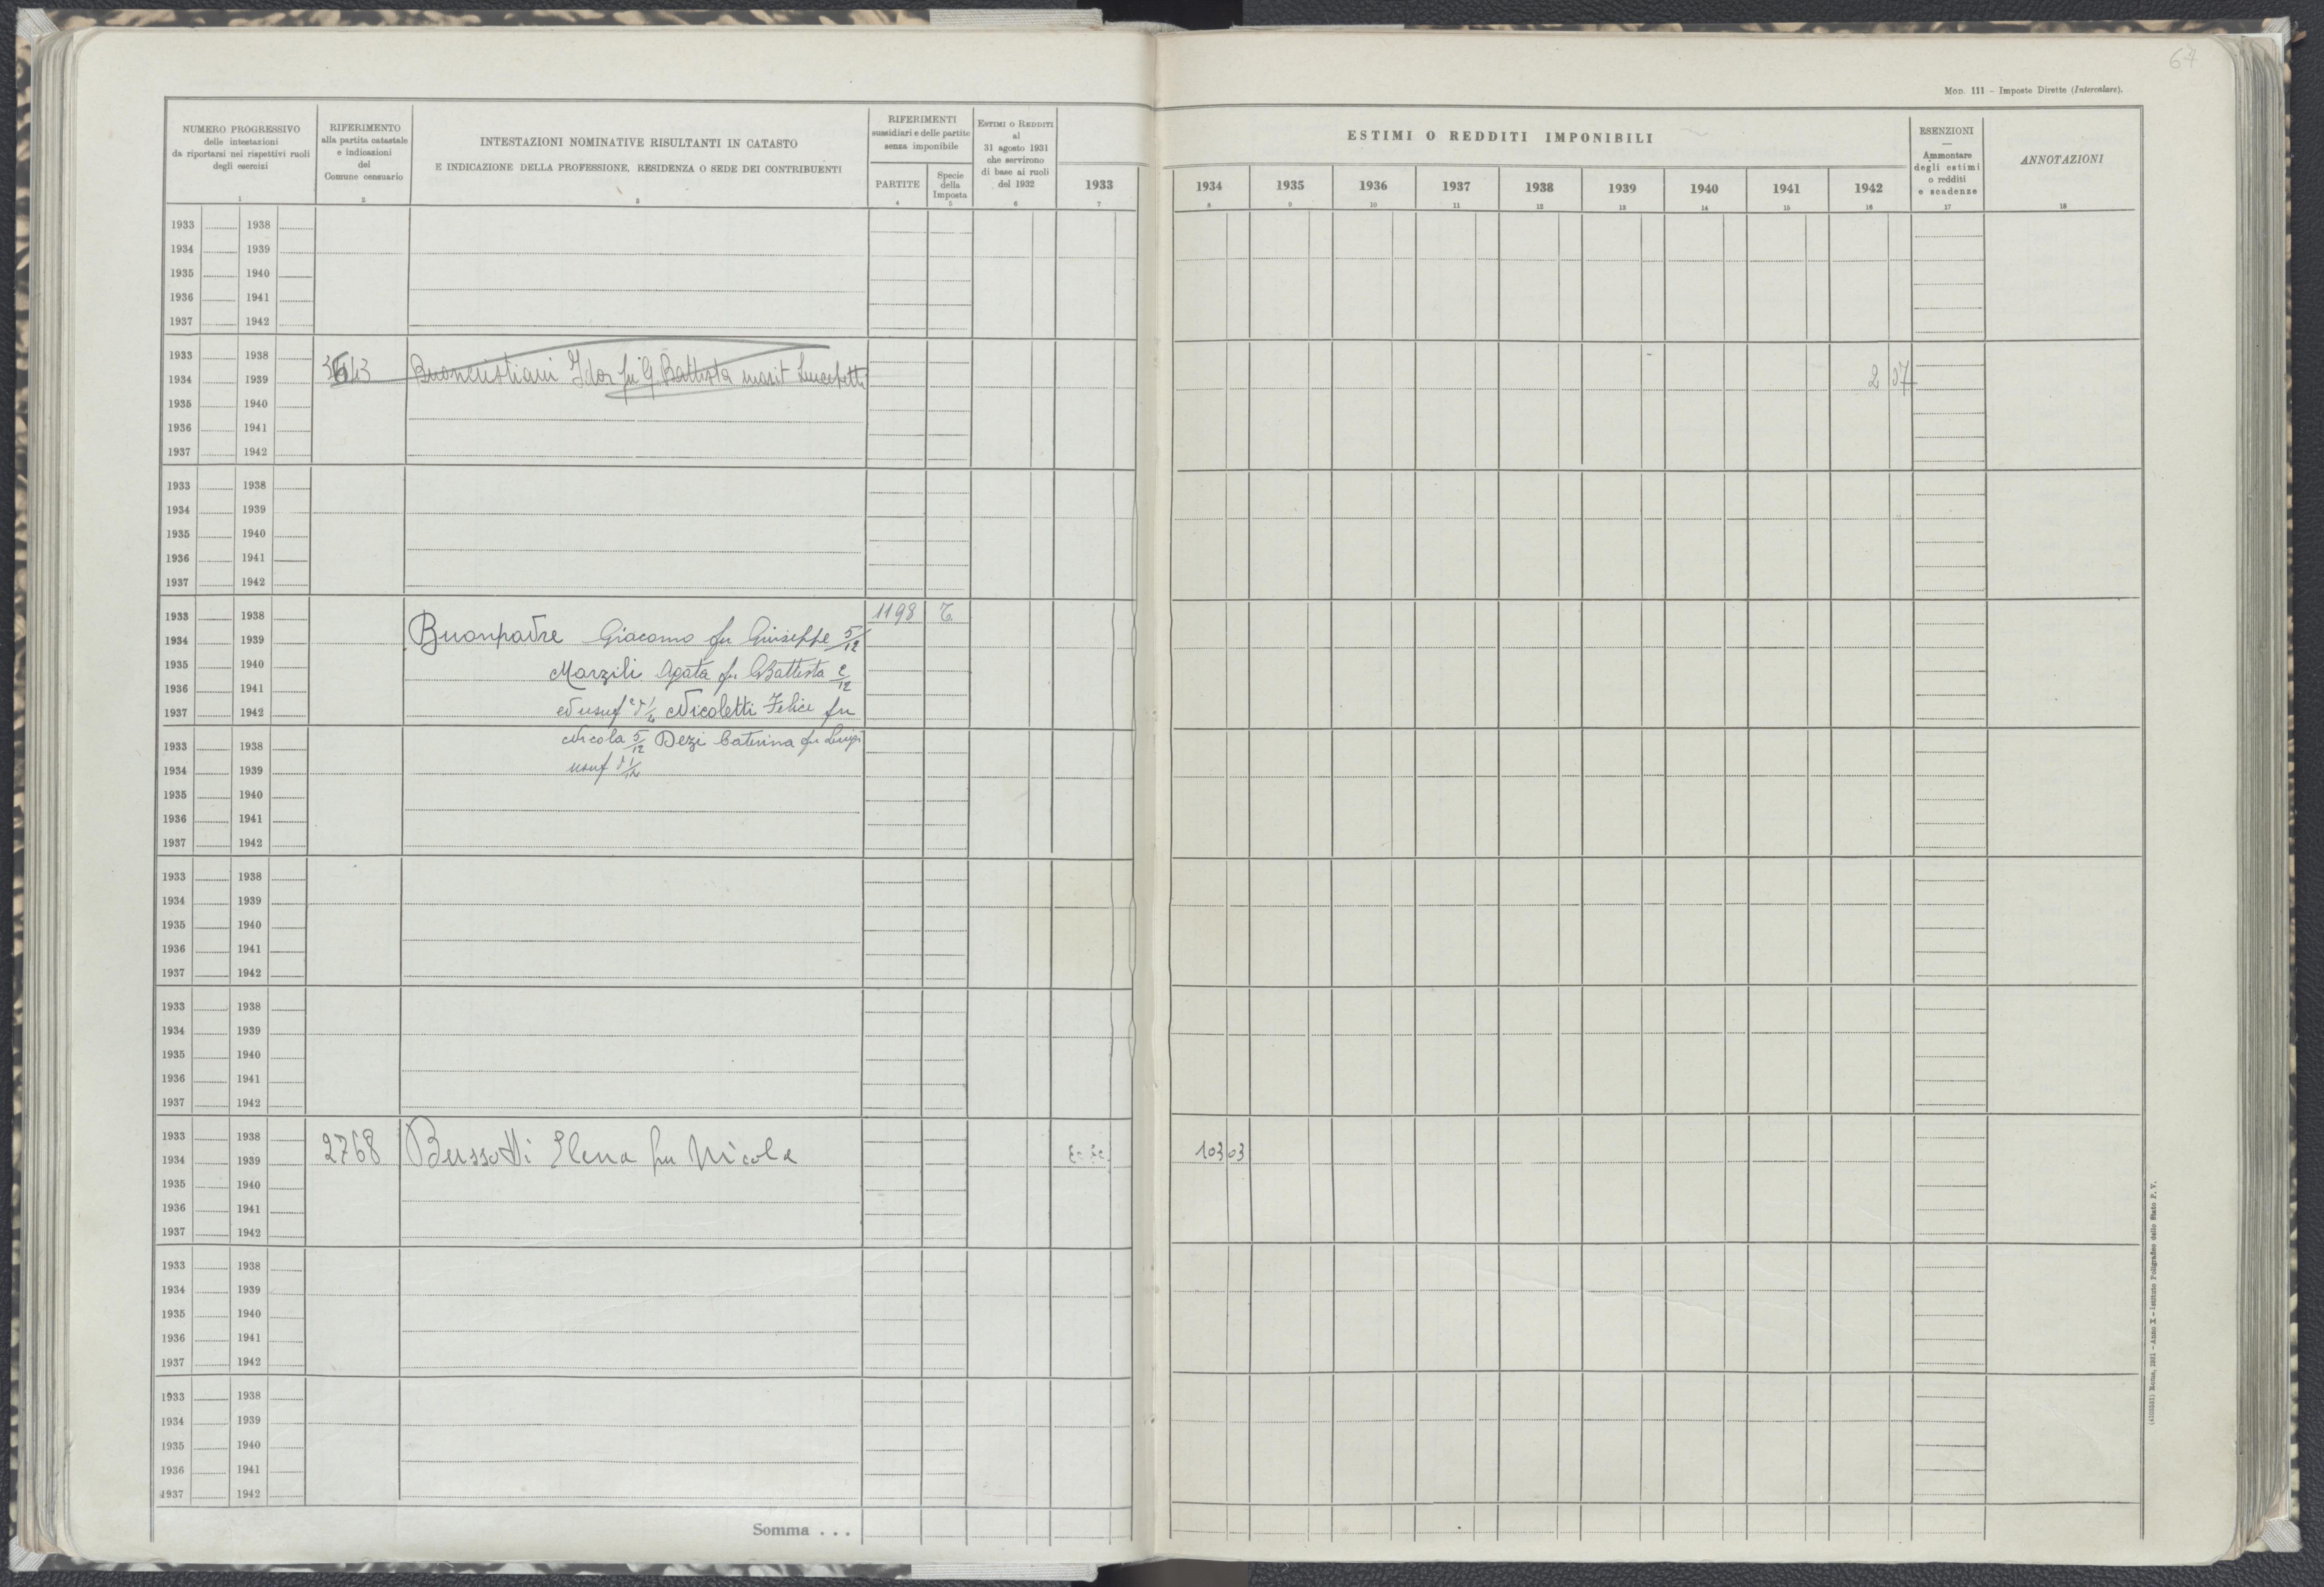 67
MOD. 111 – Imposte Dirette (Intercalare).
NUMERO PROGRESSIVO
delle intestazioni
da riportarsi nei rispettivi ruoli
degli esercizi
1
RIFERIMENTO
alla partita catastale
e indicazioni
del
Comune censuario
2
INTESTAZIONI NOMINATIVE RISULTANTI IN CATASTO
E INDICAZIONE DELLA PROFESSIONE, RESIDENZA O SEDE DEI CONTRIBUENTI
3
RIFERIMENTI
sussidiari e delle partite
senza imponibile
PARTITE
4
Specie
della
Imposta
5
ESTIMI O REDDITI
al
31 agosto 1931
che servirono
di base ai ruoli
del 1932
6
1933
7
ESTIMI O REDDITI IMPONIBILI
1934 1935 1936 1937 1938 1939 1940 1941 1942
8 9 10 11 12 13 14 15 16
ESENZIONI
—
Ammontare
degli estimi
o redditi
e scadenze
17
ANNOTAZIONI
18
1933 1938
1934 1939
1935 1940
1936 1941
1937 1942
1933 1938
1934 1939 Buoncristiani Ida fu G. Battista marit Lucchetti 2 07
1935 1940
1936 1941
1937 1942
1933 1938
1934 1939
1935 1940
1936 1941
1937 1942
1933 1938 1198 T.
1934 1939 Buonpadre Giacomo fu Giuseppe 5/12
1935 1940 Marzili Agata fu GBattista 2/12
1936 1941
1937 1942 ed usuf Nicoletti Felice fu
1933 1938 Nicola 5/12 Dezi Caterina fu Luigi
1934 1939 usuf
1935 1940
1936 1941
1937 1942
1933 1938
1934 1939
1935 1940
1936 1941
1937 1942
1933 1938
1934 1939
1935 1940
1936 1941
1937 1942
1933 1938
1934 1939 2768 Bussotti Elena fu Nicola 103 03
1935 1940
1936 1941
1937 1942
1933 1938
1934 1939
1935 1940
1936 1941
1937 1942
1933 1938
1934 1939
1935 1940
1936 1941
1937 1942
Somma . . .
(4103381) Roma, 1931 – Anno X – Istituto Poligrafico dello Stato P. V.